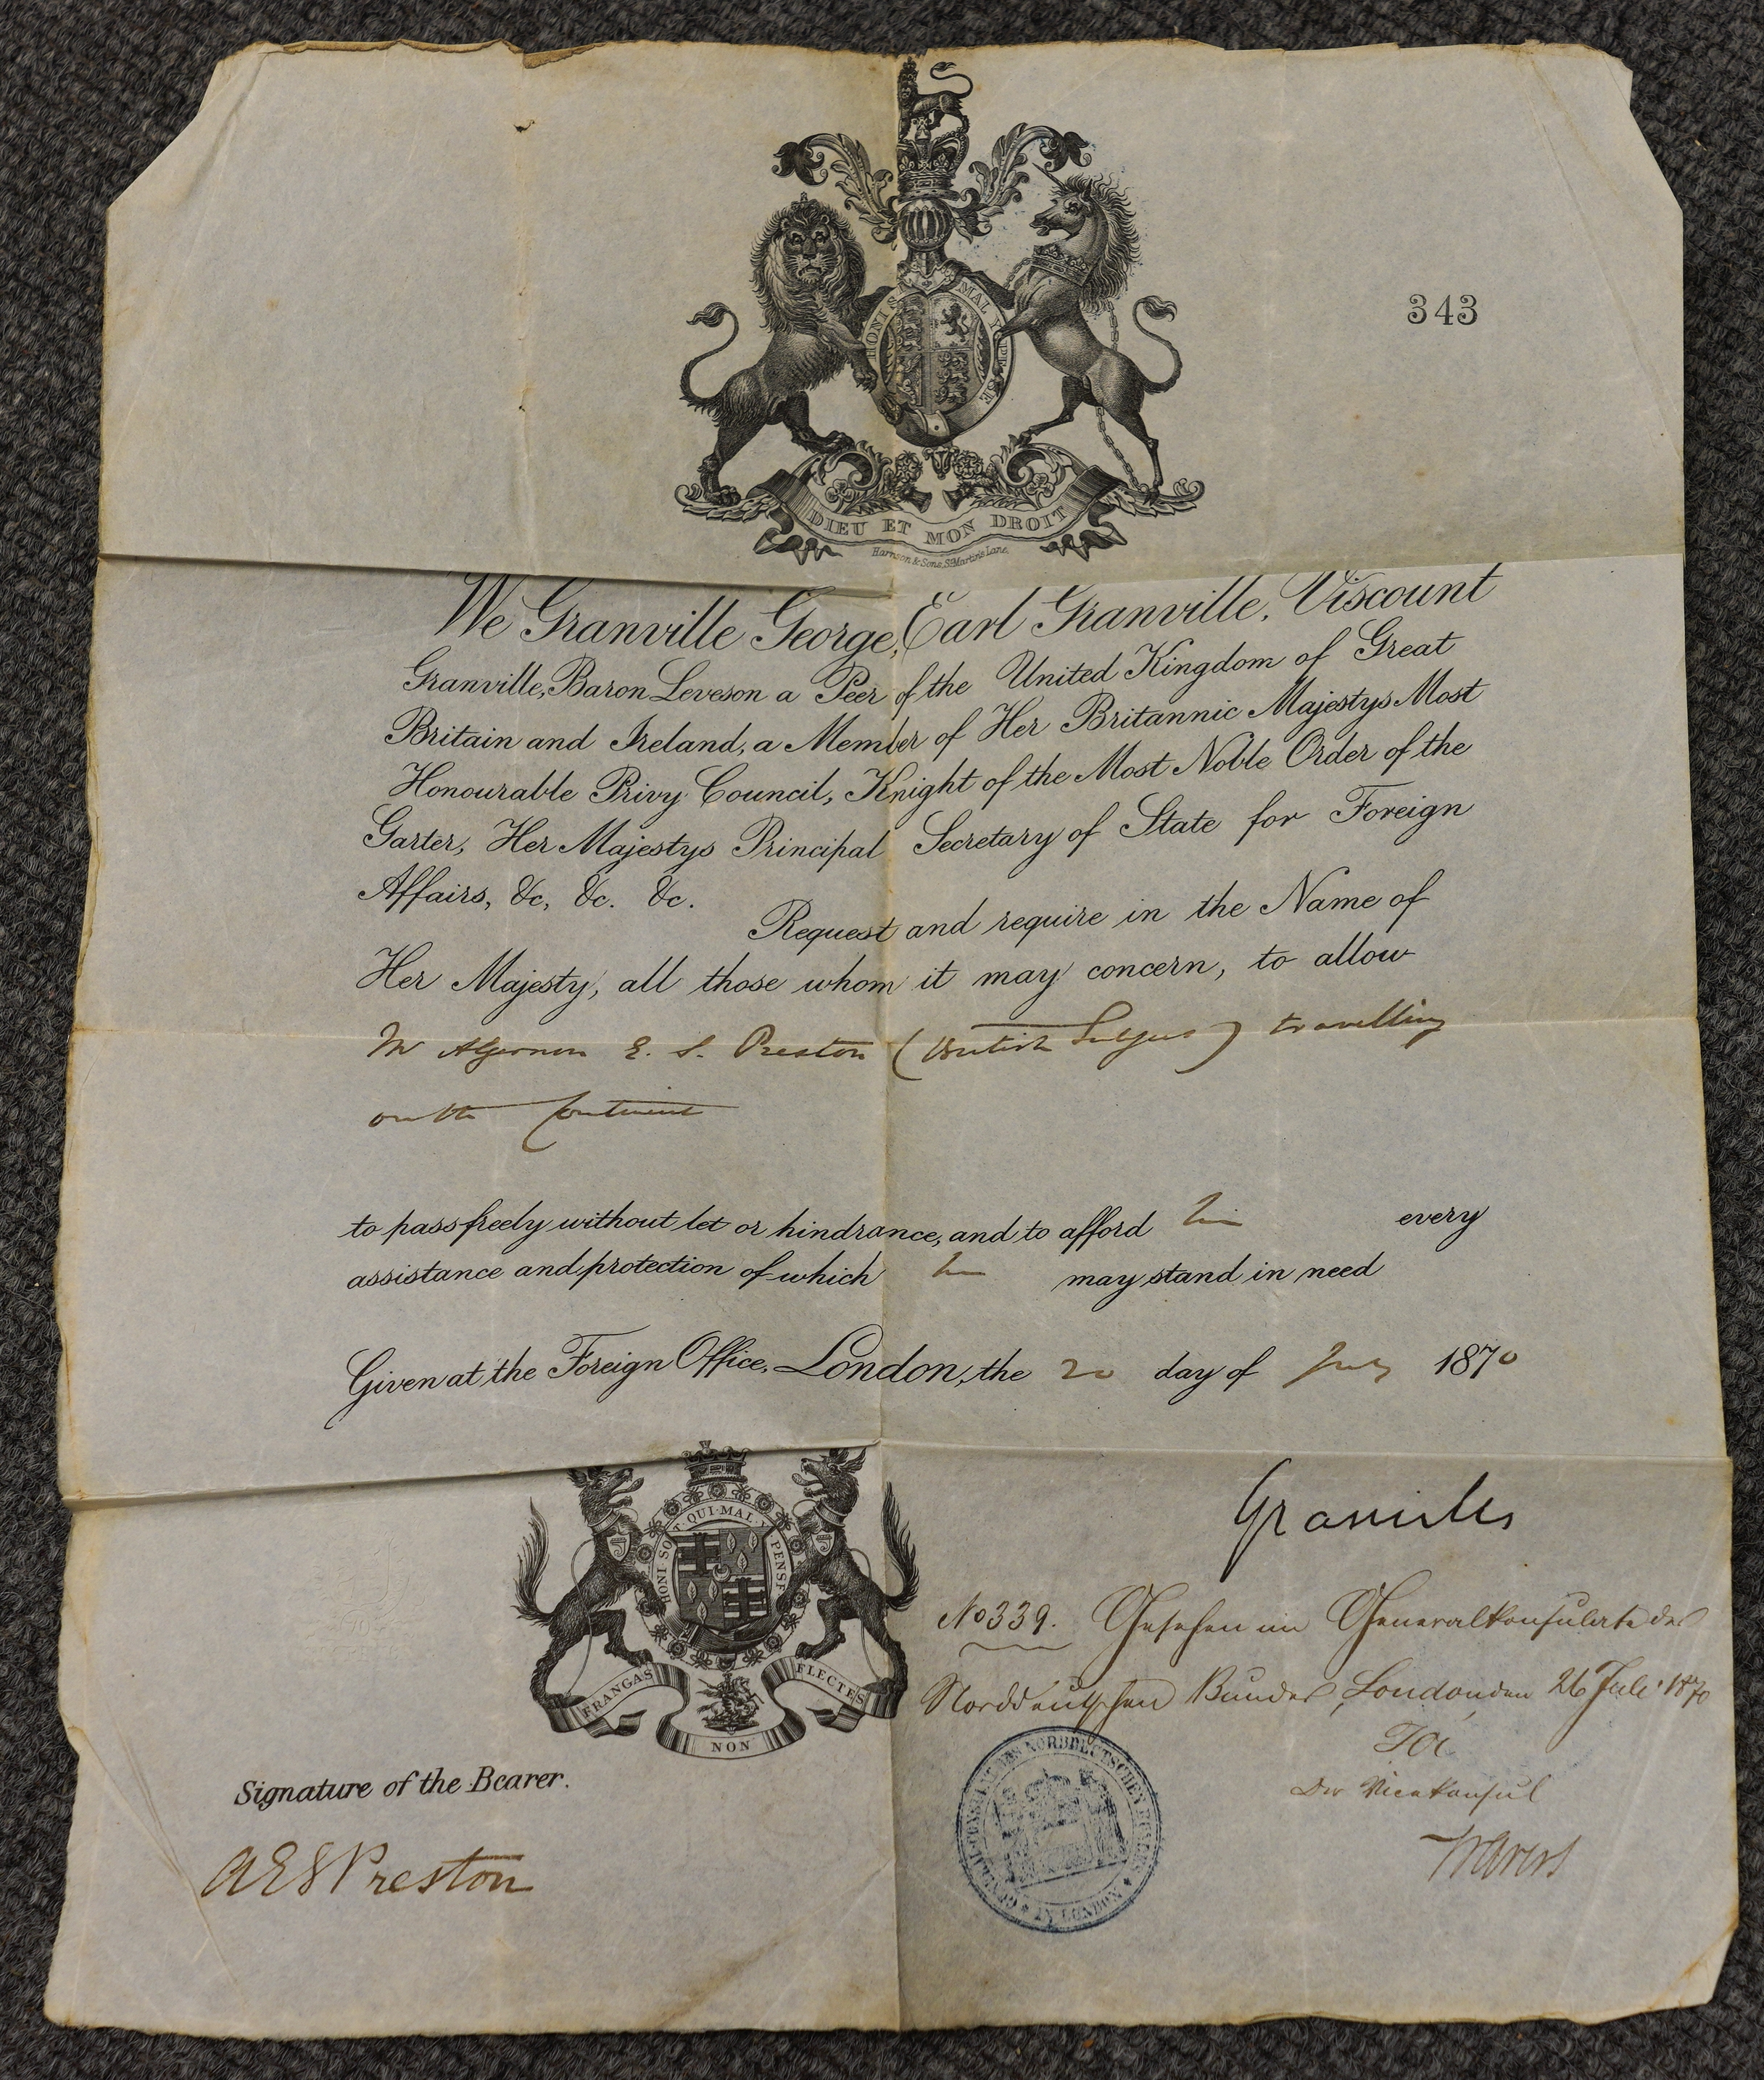 343
HONI SOIT QUI MAL Y PENSE
DIEU ET MON DROIT
Harrison & Sons, St Martin's Lane.
We Granville George, Earl Granville, Viscount
Granville, Baron Leveson a Peer of the United Kingdom of Great
Britain and Ireland, a Member of Her Britannic Majestys Most
Honourable Privy Council, Knight of the Most Noble Order of the
Garter, Her Majestys Principal Secretary of State for Foreign
Affairs, &c, &c. &c.
Request and require in the Name of
Her Majesty, all those whom it may concern, to allow
Mr Algernon E. S. Preston (British Subject) travelling
on the Continent
to pass freely without let or hindrance, and to afford him every
assistance and protection of which he may stand in need
Given at the Foreign Office, London, the 20 day of July 1870
HONI SOIT QUI MAL Y PENSE
FRANGAS NON FLECTES
Granville
No 339. Gesehen im Generalkonsulate des
Norddeutschen Bundes, London den 26 Juli 1870
Der Vicekonsul
GENERAL-CONSULAT DES NORDDEUTSCHEN BUNDES
IN LONDON
Signature of the Bearer.
A E S Preston